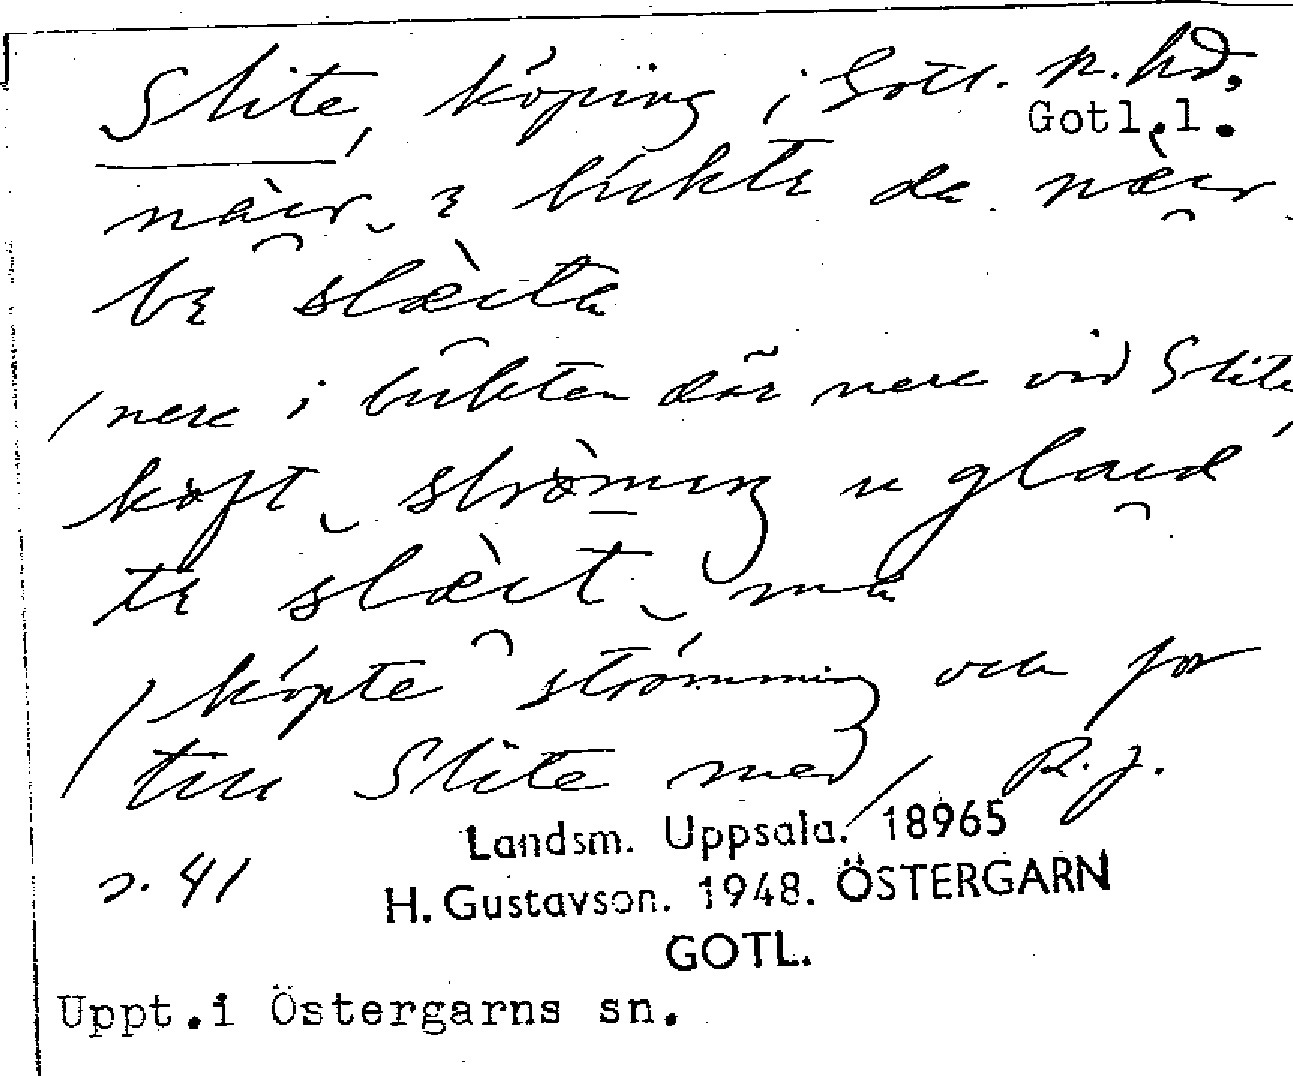 Slite, köping i Gotl. n. hd.
Gotl.l.
nàir i bukti da nær
bi slæita
/nere i bukten där nere vid Slite/
köft strömiŋ u glaid
ti slæit mä
/köpte strömming och for
till Slite med/ R.J.
s. 41
Landsm. Uppsala. 18965
H. Gustavson. 1948. ÖSTERGARN
GOTL.
Uppt.i Östergarns sn.